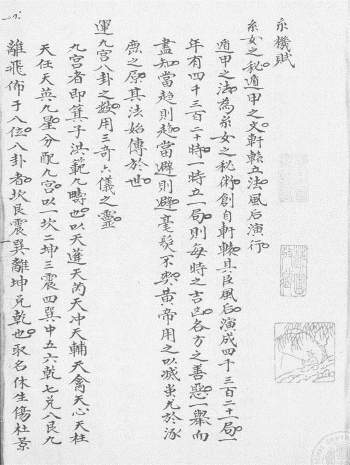 系機賦
系女之秘遁甲之文軒轅立法風后演行
遁甲之法為系女之秘術創自軒轅其臣風后演成四千三百二十一局一
年有四千三百二十時一時立一局則每時之吉凶各方之善惡一舉而
盡知當趨則趨當避則避毫髮不爽黃帝用之以滅蚩尤於涿
鹿之原其法始傳於世
運九宮八卦之数用三奇六儀之靈
九宮者即箕子洪範九疇也以天蓬天芮天冲天輔天禽天心天柱
天任天英九星分配九宮以一坎二坤三震四巽中五六乾七兌八艮九
離飛佈于八位八卦者坎艮震巽離坤兌乾也取名休生傷杜景